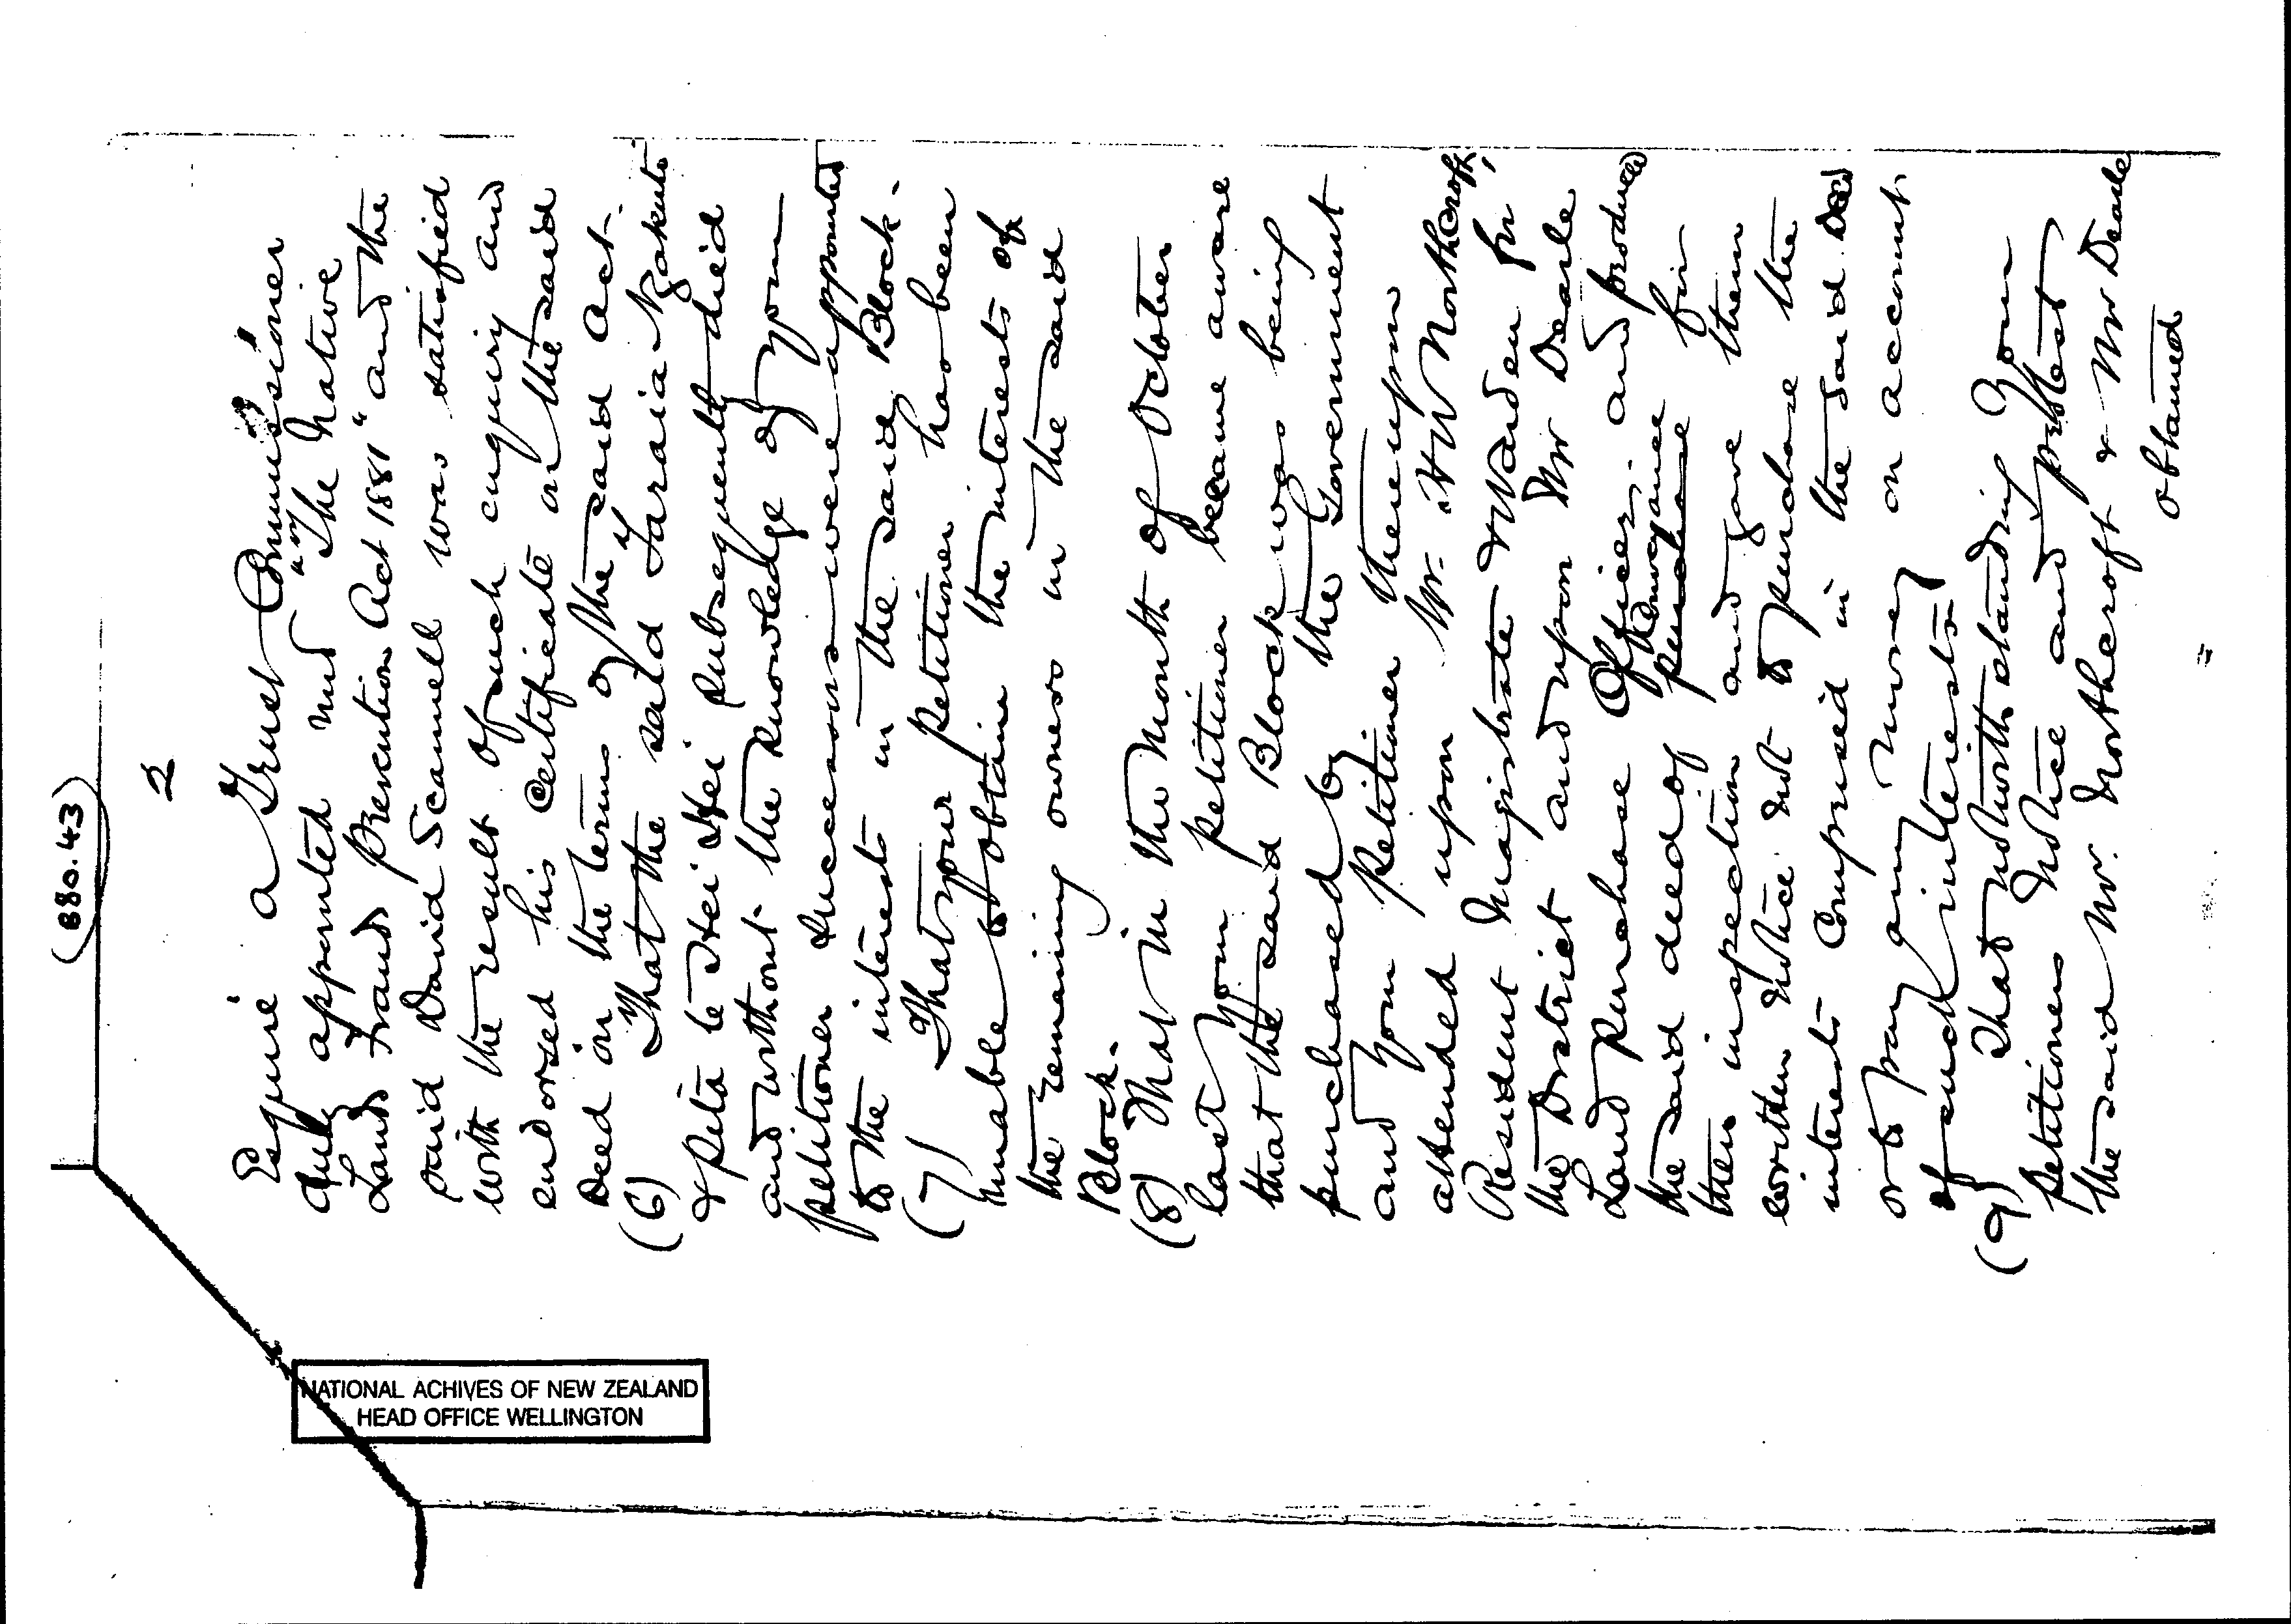 (880.43)
2
Esquire a Trust Commissioner
duly appointed under "The Native
Lands Frauds Prevention Act 1881" and the
said David Scannell was satisfied
with the result of such enquiry and
endorsed his certificate on the said
Deed in the terms of the said Act.
(6) That the said Taraia Ngakuti
& Pita te Hei Hei subsequently died
and without the knowledge of your
petitioner successors were appointed
to the interests in the said Block.
(7) That your petitioner has been
unable to obtain the interests of
the remaining owners in the said
Block.
(8) That in the month of October
last your petitioner became aware
that the said Block was being
purchased by the Government
and your petitioner thereupon
attended upon Mr. H W Northcroft,
Resident Magistrate & Warden for
the District and upon Mr Dearle
Land Purchase Officer and produced
the said deed of purchase conveyance for
their inspection and gave them
written notice not to purchase the
interests comprised in the said Deed
or to pay any money on account
of such interests
(9) That notwithstanding your
petitioners notice and protest
the said Mr. Northcroft & Mr Dearle
obtained
NATIONAL ACHIVES OF NEW ZEALAND
HEAD OFFICE WELLINGTON